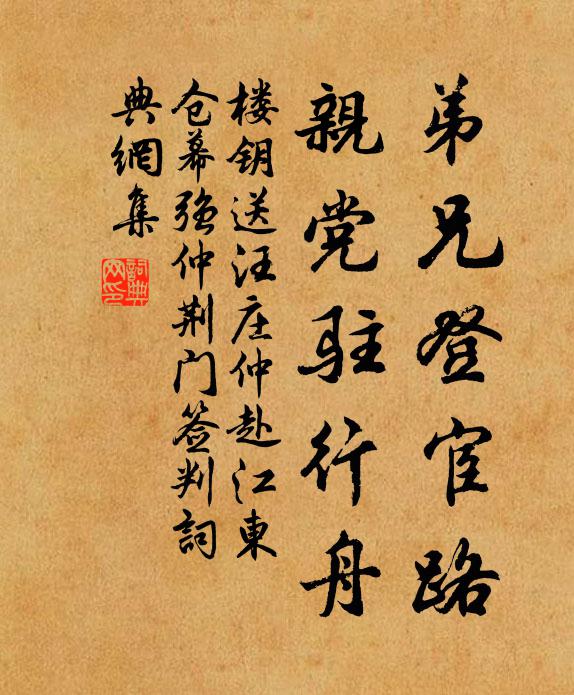 弟兄登宦路
親党驻行舟
楼钥送汪庄仲赴江東
仓幕强仲荆门签判詞
典網集
詞典網印